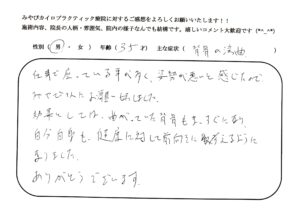 みやびカイロプラクティック療院に対するご感想をよろしくお願いいたします！！
施術内容、院長の人柄・雰囲気、院内の様子などなんでも結構です。嬉しいコメント大歓迎です (*^_^*)
性別（男・女） 年齢（35才） 主な症状（背骨の湾曲
仕事で座っている事が多く、姿勢の悪さを感じたので
みやびさんにお願いしました。
効果としては、曲がっていた背骨もまっすぐになり
自分自身も、健康に対して前向きに考えるように
なりました。
ありがとうございます。